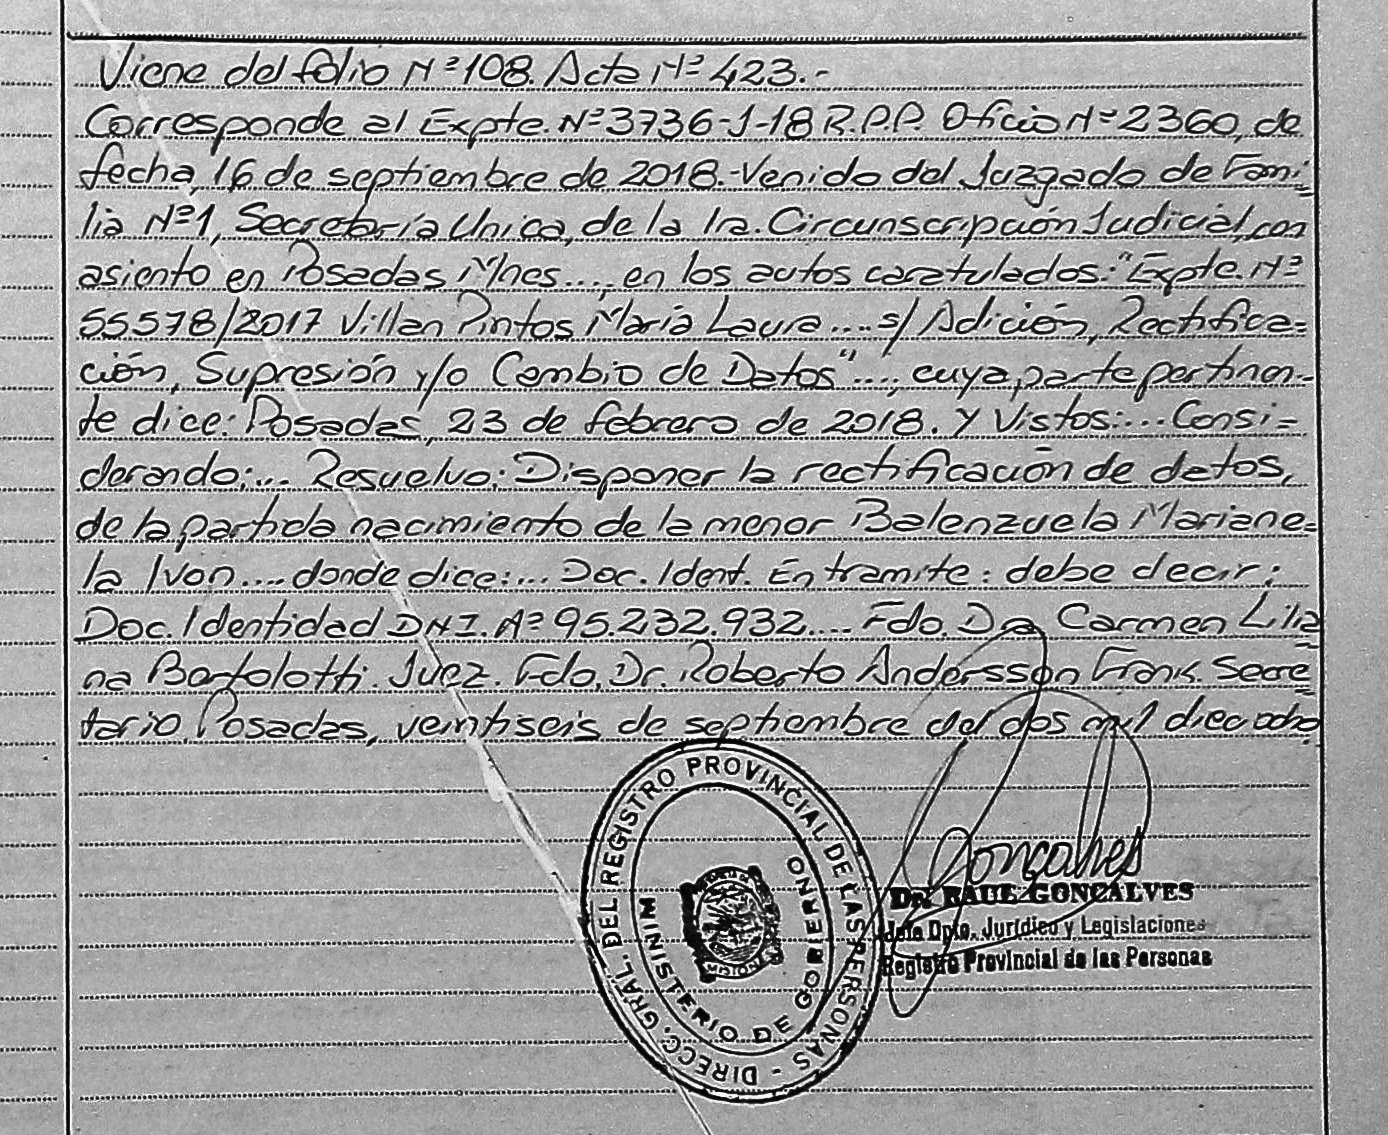 Viene del folio Nº 108. Acta Nº 423.-
Corresponde al Expte. Nº 3736-J-18 R.P.P. Oficio Nº 2360, de
fecha, 16 de septiembre de 2018.-Venido del Juzgado de Fami=
lia Nº1, Secretaría Unica, de la 1ra. Circunscripción Judicial, con
asiento en Posadas Mnes..., en los autos caratulados: "Expte. Nº
55578/2017 Villan Pintos María Laura.... s/ Adición, Rectifica=
ción, Supresión y/o Cambio de Datos"..., cuya parte pertinen-
te dice: Posadas, 23 de febrero de 2018. Y Vistos:... Consi=
derando:... Resuelvo: Disponer la rectificación de datos,
de la partida nacimiento de la menor Balenzuela Mariane=
la Ivon.... donde dice:... Doc. Ident. En tramite: debe decir:
Doc. Identidad DNI. Nº 95.232.932.... Fdo. Dra Carmen Lilia
na Bartolotti. Juez. Fdo. Dr. Roberto Andersson Frank. Secre=
tario. Posadas, veintiseis de septiembre del dos mil dieciocho
DIRECC. GRAL. DEL REGISTRO PROVINCIAL DE LAS PERSONAS -
MINISTERIO DE GOBIERNO
MISIONES
Goncalves
Dr. RAUL GONCALVES
Jefe Dpto. Jurídico y Legislaciones
Registro Provincial de las Personas